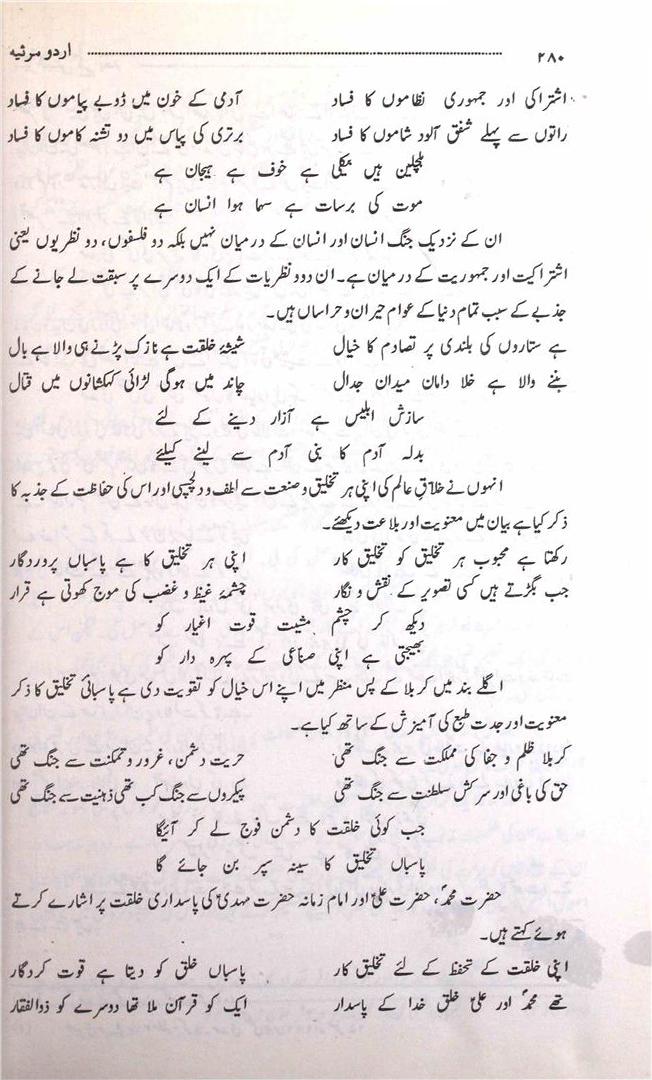 ۲۸۰ اردو مرثیہ
اشتراکی اور جمہوری نظاموں کا فساد آدمی کے خون میں ڈوبے پیاموں کا فساد
راتوں سے پہلے شفق آلود شاموں کا فساد برتری کی پیاس میں دو تشنہ کاموں کا فساد
ہلچلیں ہیں بیکلی ہے خوف ہے ہیجان ہے
موت کی برسات ہے سہما ہوا انسان ہے
ان کے نزدیک جنگ انسان اور انسان کے درمیان نہیں بلکہ دو فلسفوں، دو نظریوں یعنی
اشتراکیت اور جمہوریت کے درمیان ہے۔ ان دوو نظریات کے ایک دوسرے پر سبقت لے جانے کے
جذبے کے سبب تمام دنیا کے عوام حیران و ہراساں ہیں۔
ہے ستاروں کی بلندی پر تصادم کا خیال شیشۂ خلقت ہے نازک پڑنے ہی والا ہے بال
بننے والا ہے خلا دامان میدان جدال چاند میں ہوگی لڑائی کہکشانوں میں قتال
سازش ابلیس ہے آزار دینے کے لئے
بدلہ آدم کا بنی آدم سے لینے کیلئے
انہوں نے خلاق عالم کی اپنی ہر تخلیق و صنعت سے لطف و دلچسپی اور اس کی حفاظت کے جذبہ کا
ذکر کیا ہے بیان میں معنویت اور بلاغت دیکھئے۔
رکھتا ہے محبوب ہر تخلیق کو تخلیق کار اپنی ہر تخلیق کا ہے پاسباں پروردگار
جب بگڑتے ہیں کسی تصویر کے نقش و نگار چشمۂ غیظ و غضب کی موج کھوتی ہے قرار
دیکھ کر چشم مشیت قوت اغیار کو
بھیجتی ہے اپنی صناعی کے پہرہ دار کو
اگلے بند میں کربلا کے پس منظر میں اپنے اس خیال کو تقویت دی ہے پاسبائی تخلیق کا ذکر
معنویت اور جدت طبع کی آمیزش کے ساتھ کیا ہے۔
کربلا ظلم و جفا کی مملکت سے جنگ تھی حریت دشمن، غرور و تمکنت سے جنگ تھی
حق کی باغی اور سرکش سلطنت سے جنگ تھی پیکروں سے جنگ کب تھی ذہنیت سے جنگ تھی
جب کوئی خلقت کا دشمن فوج لے کر آئیگا
پاسباں تخلیق کا سینہ سپر بن جائے گا
حضرت محمدؐ، حضرت علیؑ اور امام زمانہ حضرت مہدیؑ کی پاسداری خلقت پر اشارے کرتے
ہوئے کہتے ہیں۔
اپنی خلقت کے تحفظ کے لئے تخلیق کار پاسباں خلق کو دیتا ہے قوت کردگار
تھے محمدؐ اور علیؑ خلق خدا کے پاسدار ایک کو قرآن ملا تھا دوسرے کو ذوالفقار